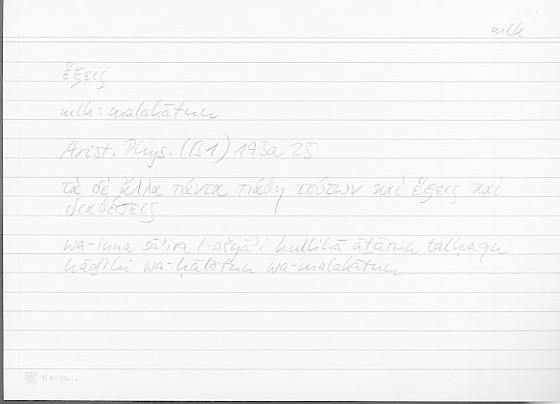 mlk
ἕξεις
mlk: malakātun
Arist. Phys. (B1) 193a 25
τὰ δὲ ἄλλα πάντα πάθη τούτων καὶ ἕξεις καὶ
διαθέσεις
wa-inna sā'ira l-ašyā'i kullihā āṯārun talḥaqu
hāḏihi wa-ḥālātun wa-malakātun